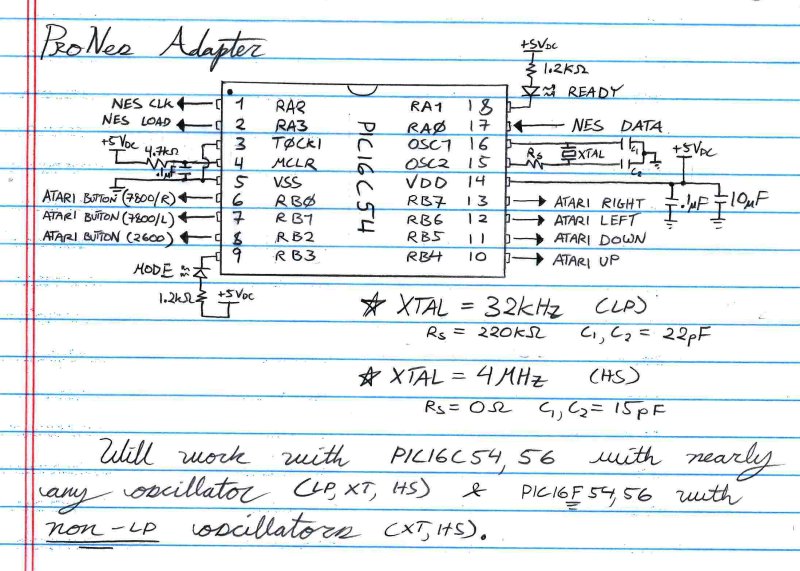 ProNes Adapter
+5VDC
1.2kΩ
READY
NES CLK 1 RA2 RA1 18
NES LOAD 2 RA3 RA0 17 NES DATA
+5VDC 3 T0CK1 OSC1 16 C1 +5VDC
4.7kΩ 4 MCLR OSC2 15 Rs XTAL C2
.1μF 5 VSS VDD 14
ATARI BUTTON (7800/R) 6 RB0 RB7 13 ATARI RIGHT .1μF 10μF
ATARI BUTTON (7800/L) 7 RB1 RB6 12 ATARI LEFT
ATARI BUTTON (2600) 8 RB2 RB5 11 ATARI DOWN
9 RB3 RB4 10 ATARI UP
PIC16C54
MODE
1.2kΩ +5VDC
☆ XTAL = 32kHz (LP)
Rs = 220kΩ C1, C2 = 22pF
☆ XTAL = 4MHz (HS)
Rs = 0Ω C1, C2 = 15pF
Will work with PIC16C54, 56 with nearly
any oscillator (LP, XT, HS) & PIC16F54,56 with
non-LP oscillators (XT, HS).